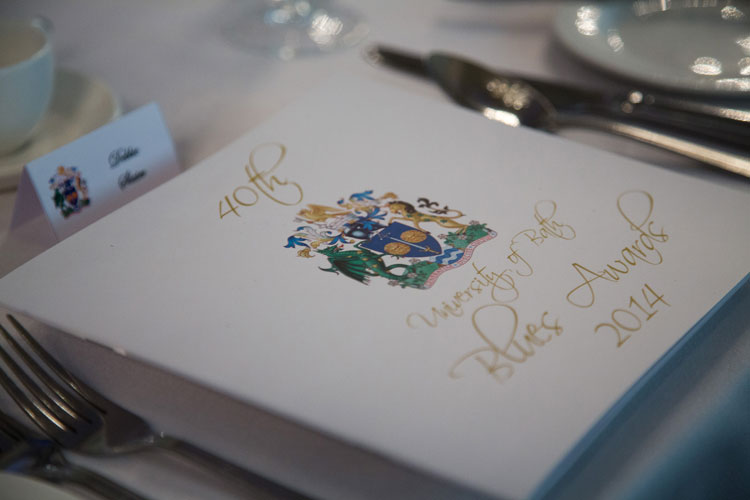 40th
University of Bath
Blues Awards
2014
Debbie